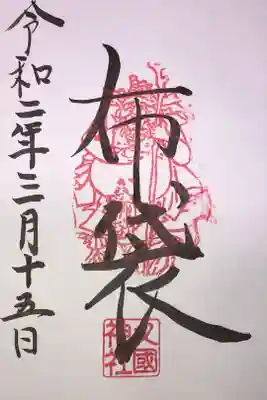 布袋
令和二年三月十五日
國
神社